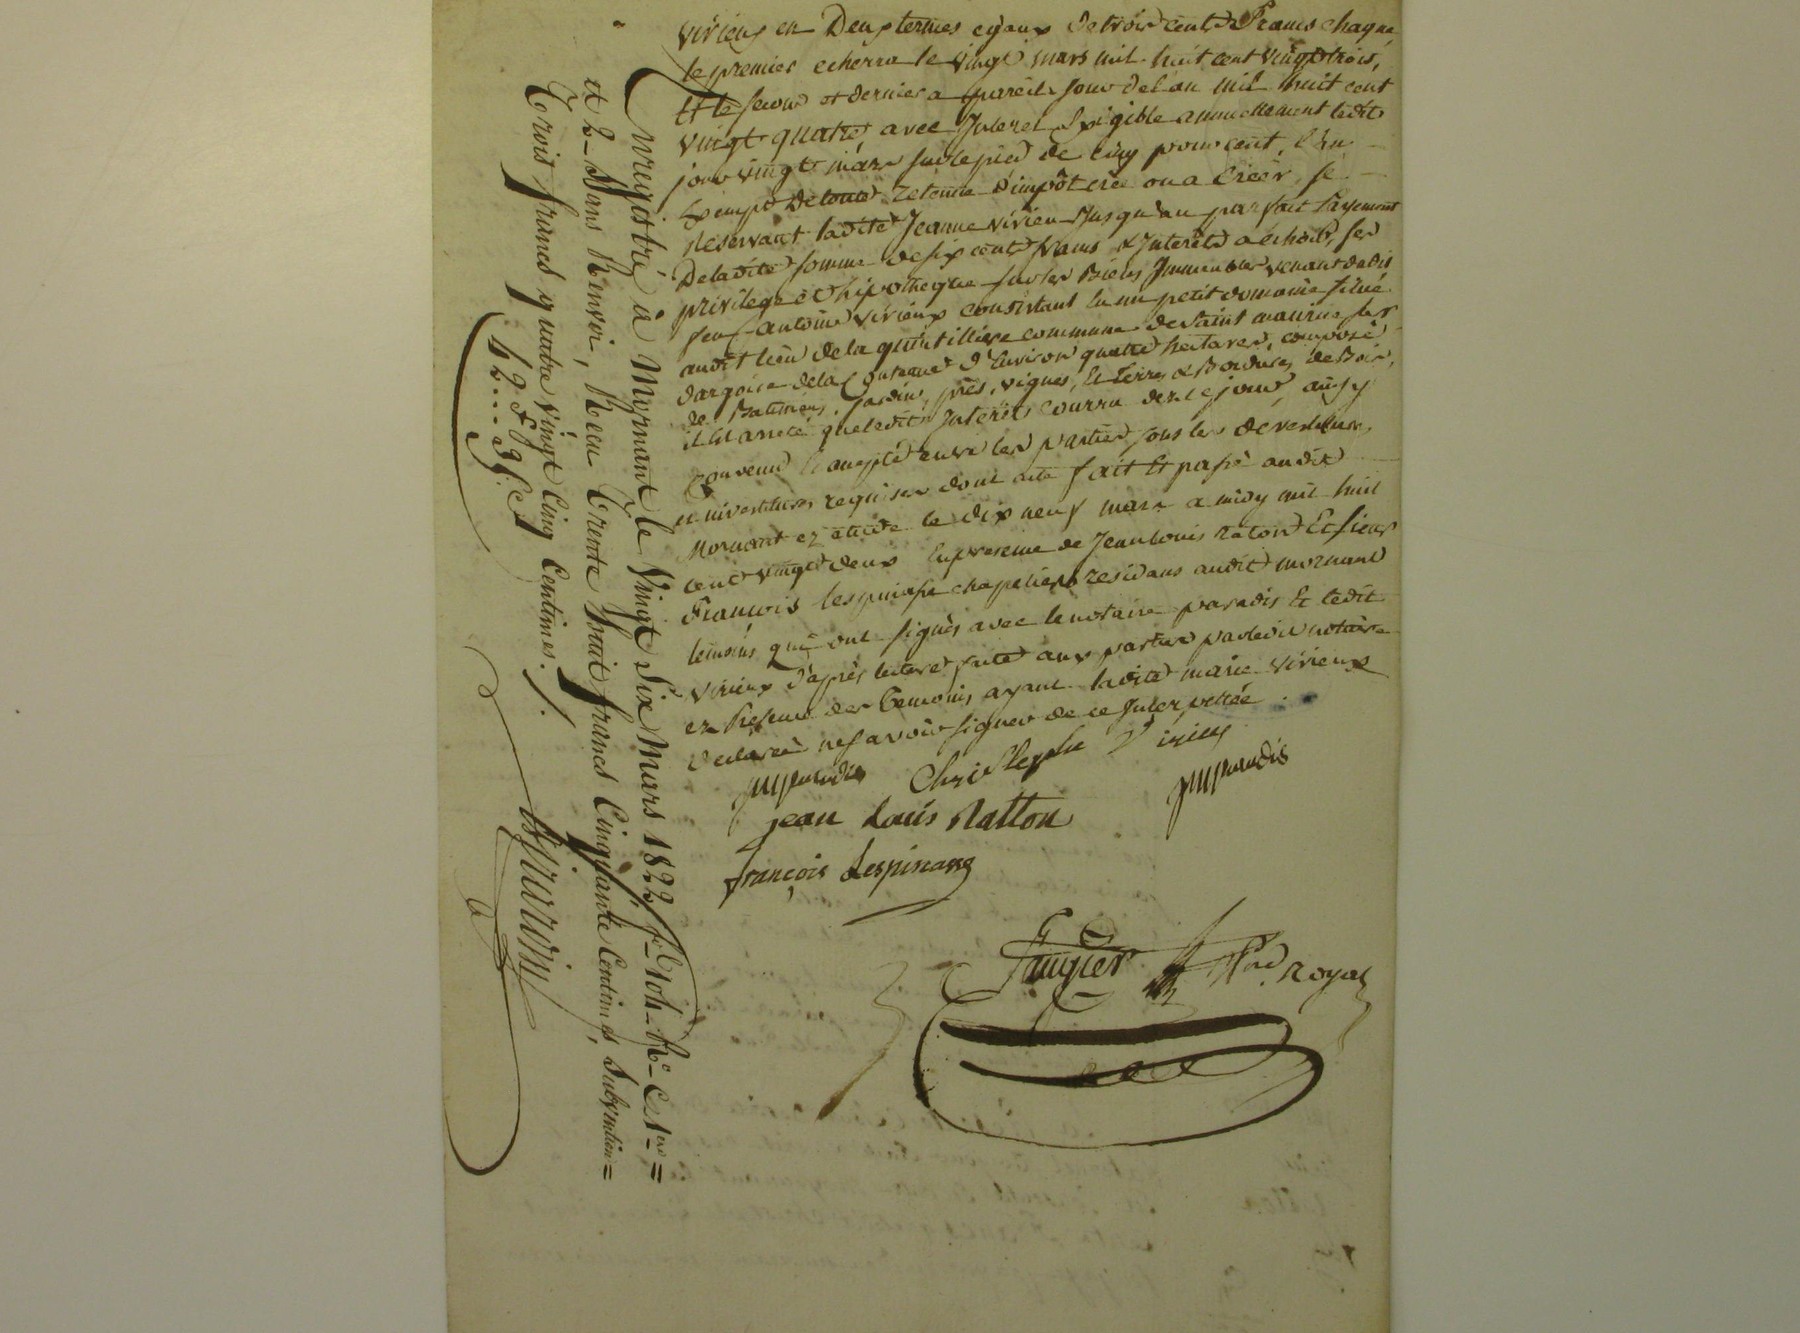 virieux en Deux termes egaux de trois cents Francs chaque
le premier echerra le vingt mars mil huit cent vingt trois,
Et le second et dernier a pareil jour de l'an mil huit cent
vingt quatre avec Interet Exigible annuellement ledit
jour vingt mars sur le pied de cinq pour cent, l'an
Exempt de toute retenue d'impôt créé ou a créer, se
reservant ladite Jeanne virieu jusqu'au parfait Payement
De ladite somme de six cents francs & Interêts a echoir, ses
privilege et hipotheque sur les Biens Immeubles venant dudit
feu antoine virieux consistant en un petit domaine situé
audit lieu de la quintillière commune de Saint maurice sur
dargoire de la Contenue d'Environ quatre hectares, composé
de Batimens, jardin, prés, vignes, Et terres & Bordures de Bois,
il Est arreté que ledit Interêts courra dez ce jour, ainsy
Convenu & accepté entre les parties sous les devestitures
et investitures requises dont acte fait Et passé audit
Mornant ez etude le dix neuf mars a midy mil huit
cent vingt deux En presence de Jean louis raton Et sieur
François lespinasse chapeliers residans audit mornant
temoins qui ont signés avec le notaire paradis Et ledit
virieux d'après lecture faite aux parties par ledit notaire
en presence des temoins ayant ladite marie virieux
declarée ne savoir signer de ce Interpellée.
Christophe Virieux
Jean Louis Ratton
françois Lespinasse
Paradis
Royal
Enregistré à Mornant le Vingt Six Mars 1822 f° 104 R° C. 1ere =
et 2 Sans Renvoi, Reçu Trente huit francs Cinquante Centimes, Subvention =
Trois francs quatre Vingt Cinq Centimes. /.
42 F 35 C